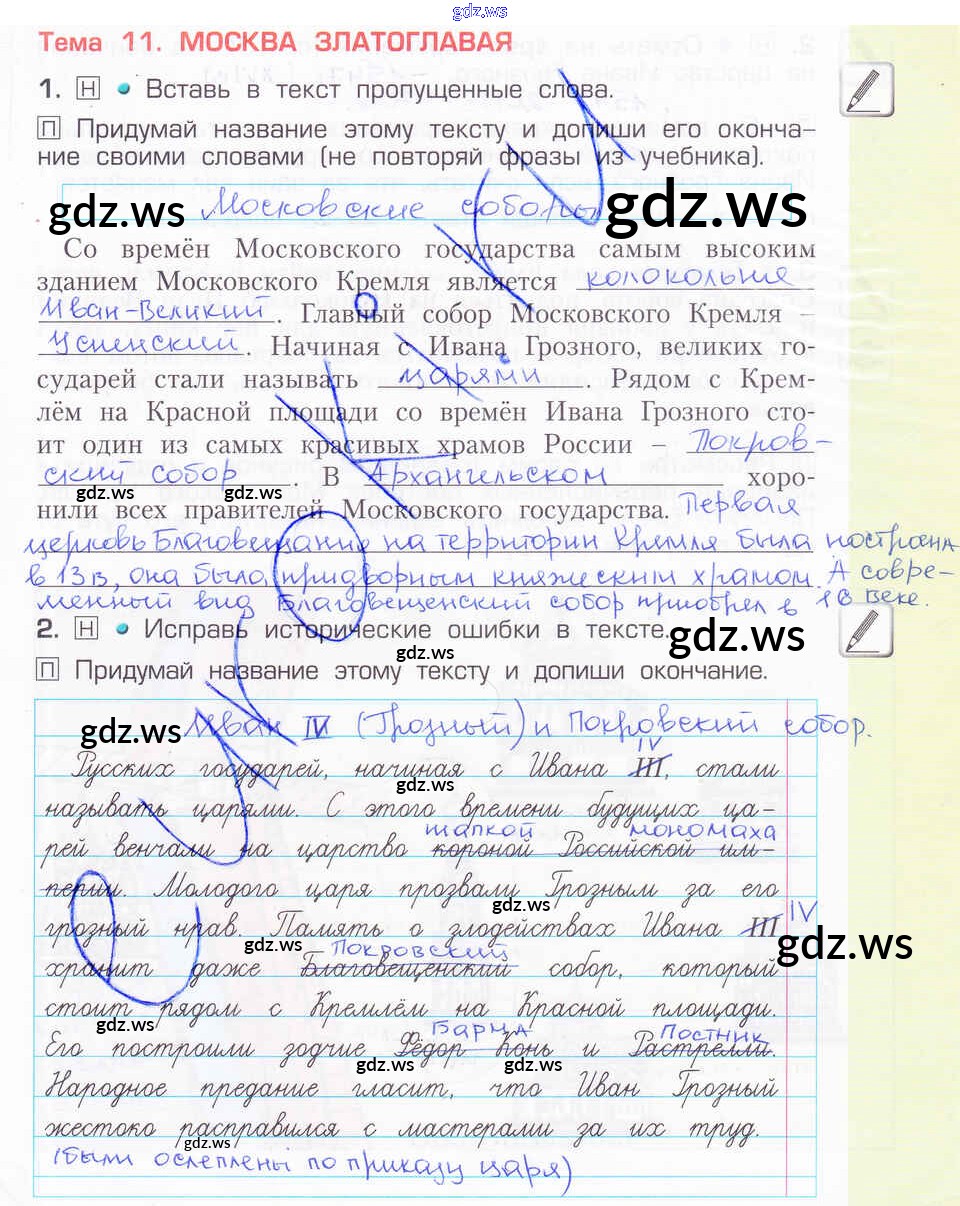 gdz.ws
Тема 11. МОСКВА ЗЛАТОГЛАВАЯ
1. Н • Вставь в текст пропущенные слова.
П Придумай название этому тексту и допиши его оконча-
ние своими словами (не повторяй фразы из учебника).
gdz.ws Московские соборы gdz.ws
Со времён Московского государства самым высоким
зданием Московского Кремля является колокольня
Иван-Великий. Главный собор Московского Кремля –
Успенский. Начиная с Ивана Грозного, великих го-
сударей стали называть царями. Рядом с Крем-
лём на Красной площади со времён Ивана Грозного сто-
ит один из самых красивых храмов России – Покров-
ский собор. В Архангельском хоро-
gdz.ws gdz.ws
нили всех правителей Московского государства. Первая
церковь Благовещания на территории Кремля была построена
в 13 в, она была придворным княжеским храмом. А совре-
менный вид Благовещенский собор приобрел в 16 веке.
2. Н • Исправь исторические ошибки в тексте. gdz.ws
gdz.ws
П Придумай название этому тексту и допиши окончание.
Иван IV (Грозный) и Покровский собор.
gdz.ws
IV
Русских государей, начиная с Ивана III, стали
gdz.ws
называть царями. С этого времени будущих ца-
шапкой мономаха
рей венчали на царство короной Российской им-
перии. Молодого царя прозвали Грозным за его
IV
грозный нрав. Память о злодействах Ивана III
gdz.ws gdz.ws
Покровский
хранит даже Благовещенский собор, который
стоит рядом с Кремлём на Красной площади.
gdz.ws
Барма Постник
Его построили зодчие Фёдор Конь и Растрелли.
gdz.ws gdz.ws
Народное предание гласит, что Иван Грозный
жестоко расправился с мастерами за их труд.
gdz.ws
(были ослеплены по приказу царя)